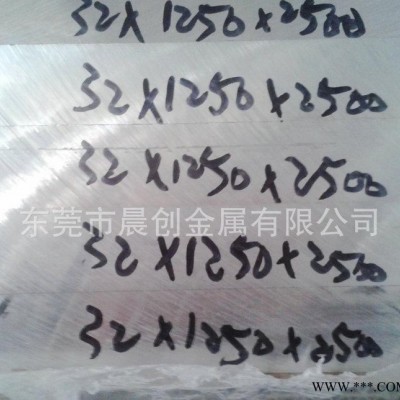 32×1250×2500
32×1250×2500
32×1250×2500
东莞市晨创金属有限公司
32×1250×2500
32×1250×2500
www.***.COM